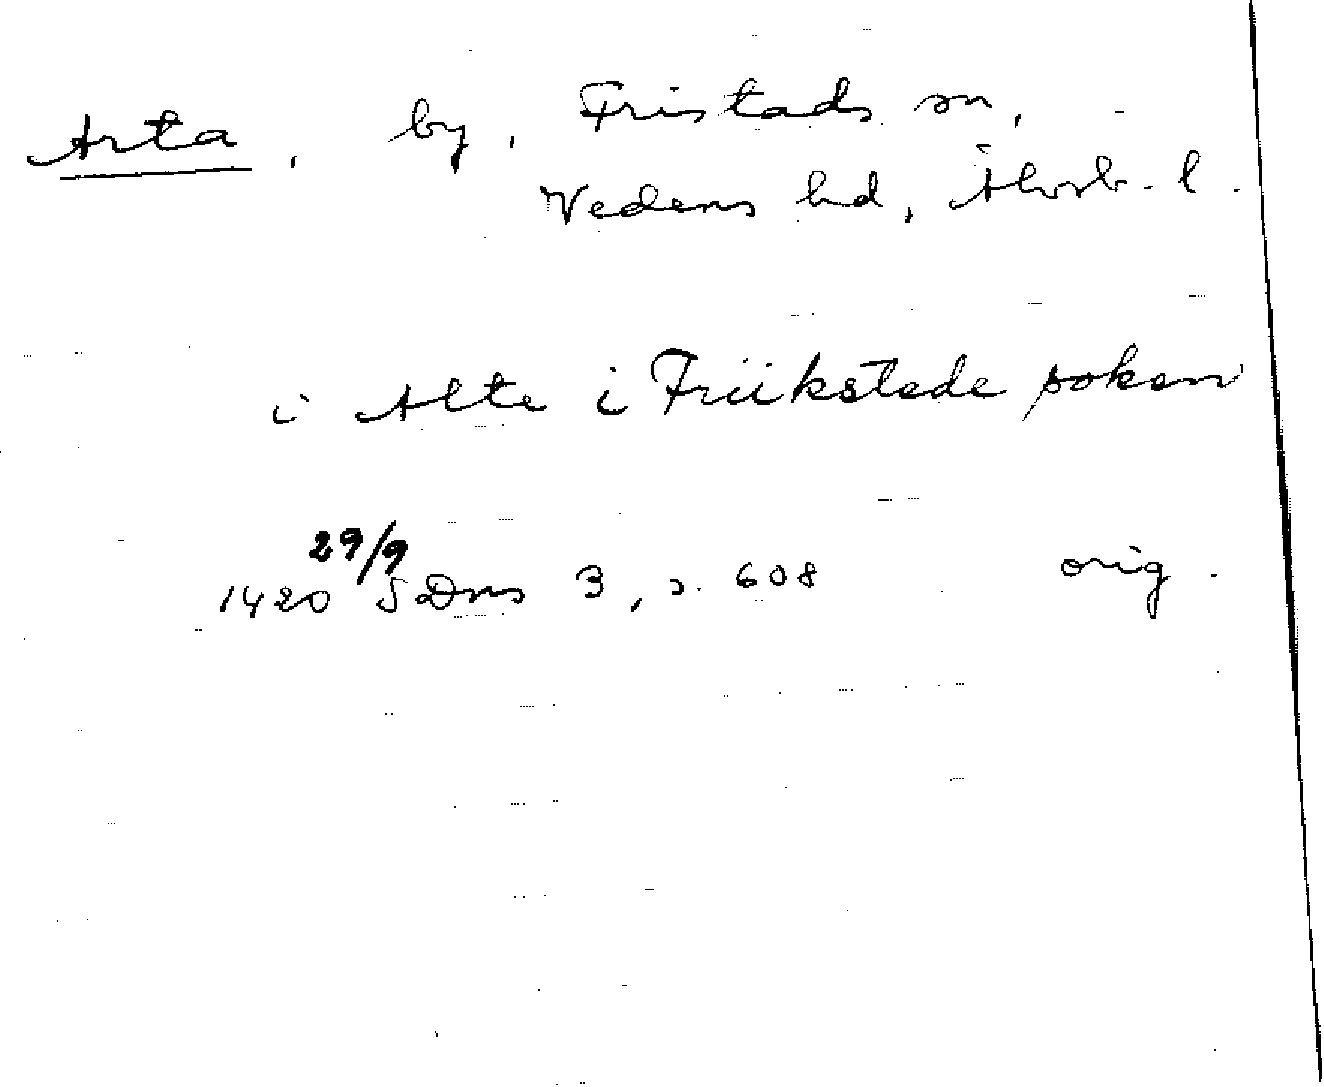 Arta, by, Fristads sn,
Vedens hd, Älvsb. l.
i Alte i Friikstede soken
1420 29/9 SDns 3, s. 608 orig.